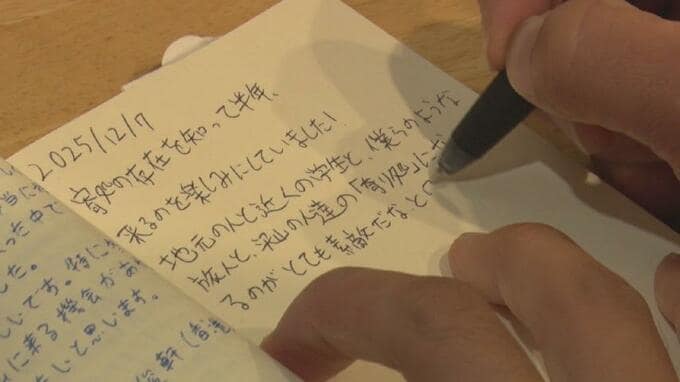 った中で
した。
しいです。特に
に来る機会があ
しいと思います。
2025/12/7
寄処の存在を知って半年、
来るのを楽しみにしていました!
地元の人と近くの学生と、僕らのような
旅人と、沢山の人達の「寄り処」にな
るのがとても素敵だなと